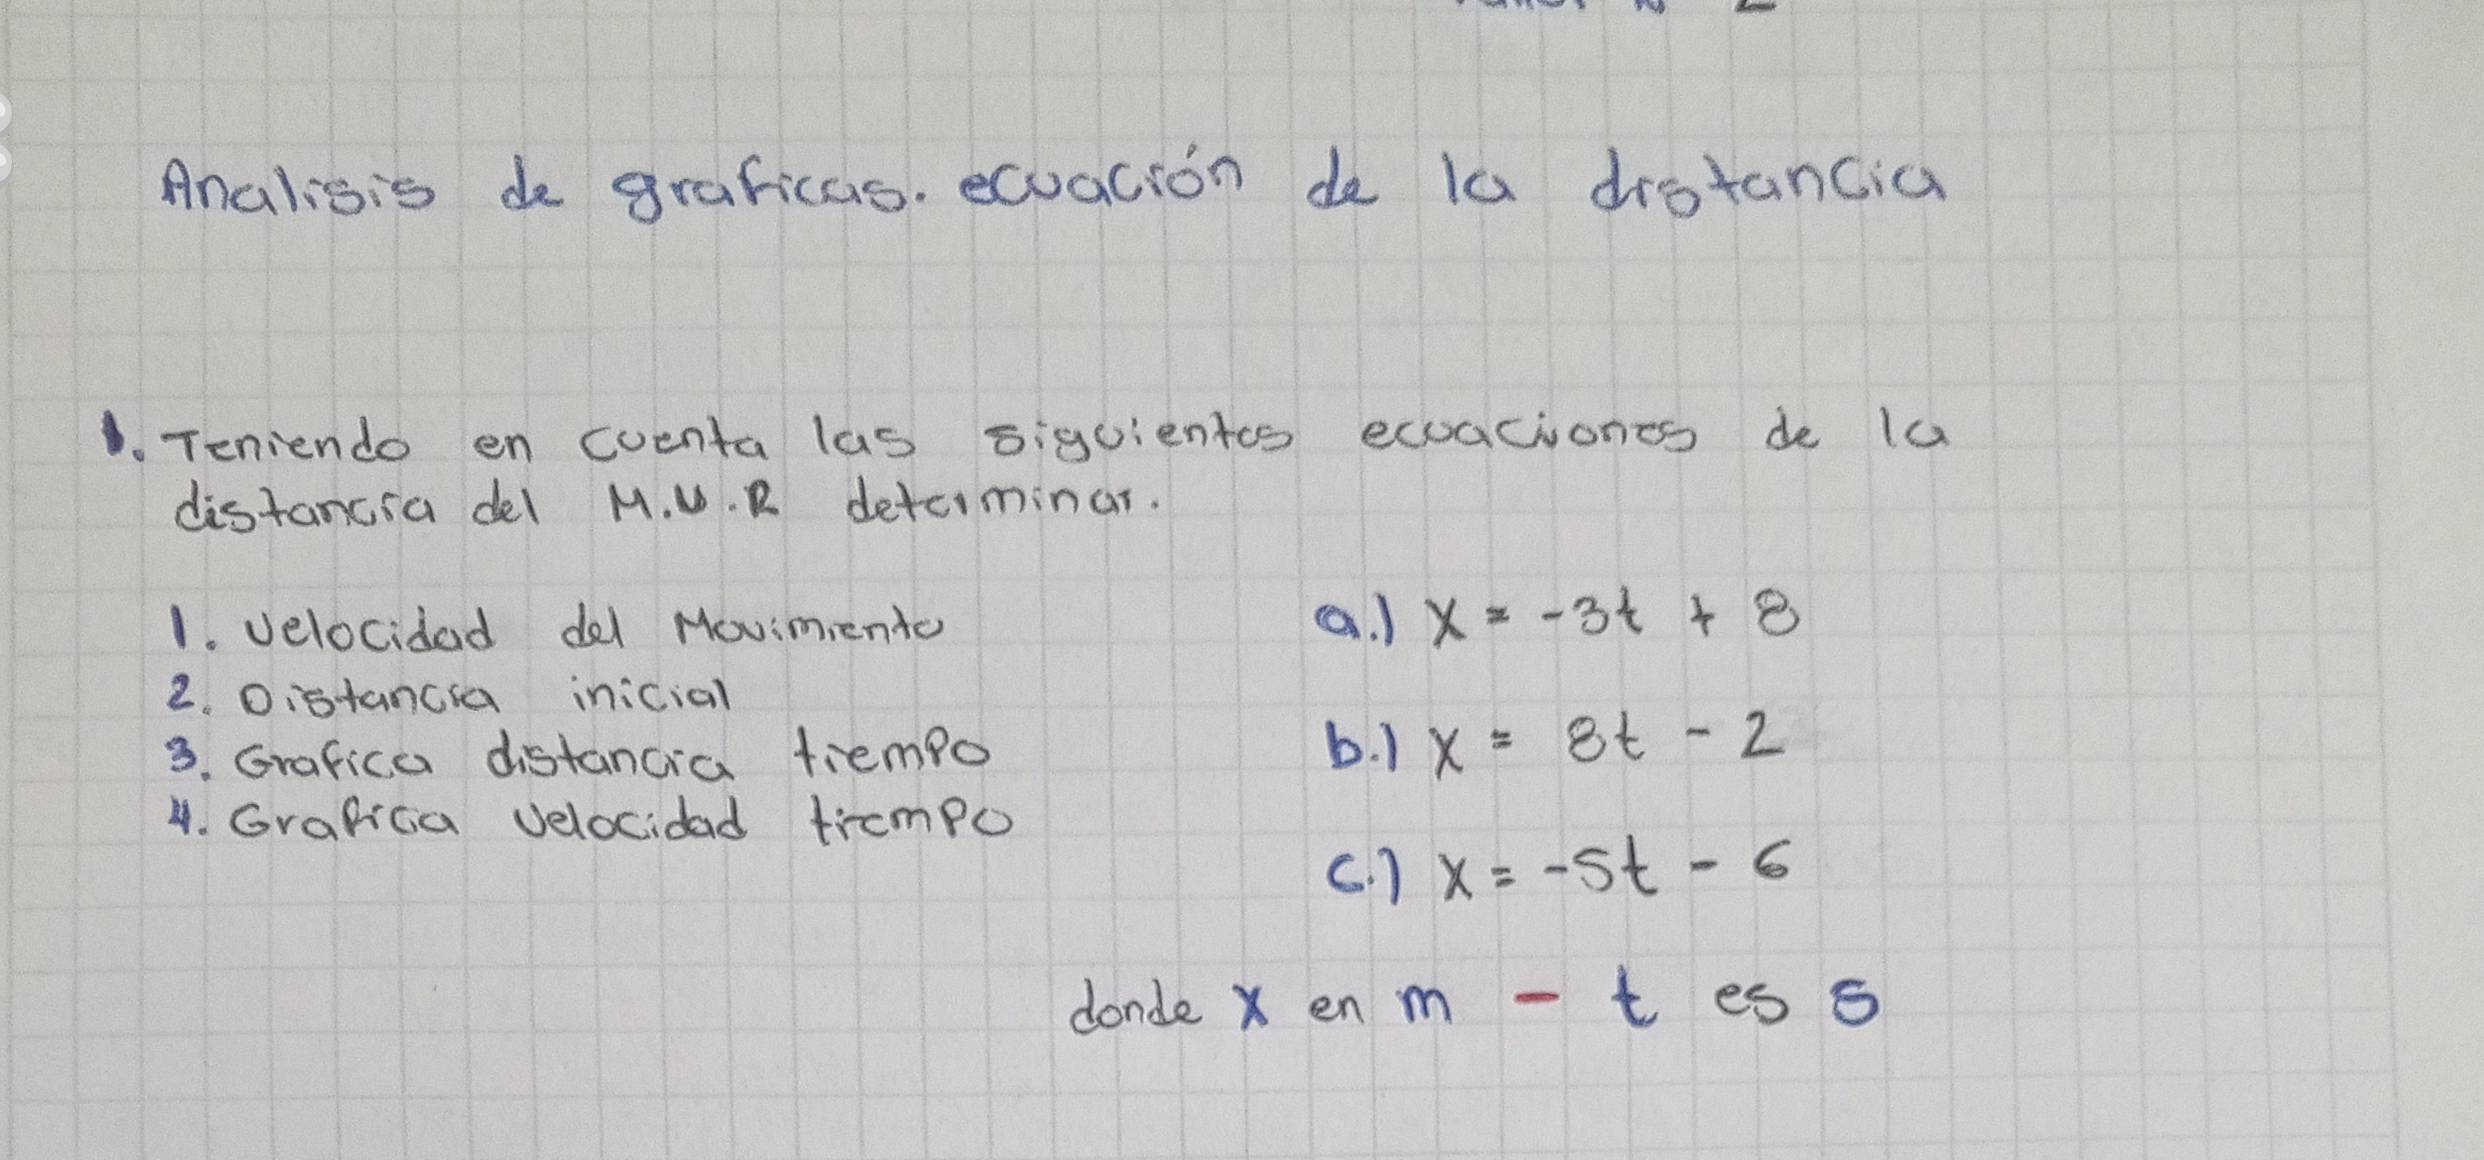 Analisis de graficas. ecuación de la distancia
1. Teniendo en cuenta las siguientes ecuaciones de la
distancia del M.U.R determinar.
1. Velocidad del Movimiento
2. Distancia inicial
3. Grafica distancia tiempo
4. Grafica Velocidad tiempo
a.) x = -3t + 8
b.) x = 8t - 2
c.) x = -5t - 6
donde x en m - t es s